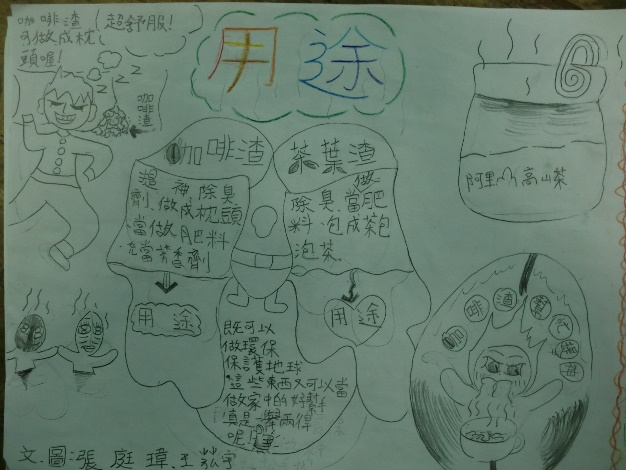 用途
咖啡渣
可做成枕
頭喔!
超舒服!
咖啡渣
咖啡渣
提神除臭
劑、做成枕頭
當做肥料
充當芳香劑
用途
茶葉渣
除臭、當做肥
料、泡成茶包
泡茶
用途
阿里山高山茶
既可以
做環保
保護地球
這些東西又可以當
做家中的好幫手
真是一舉兩得
呢
咖啡渣
文.圖:張庭瑋.王